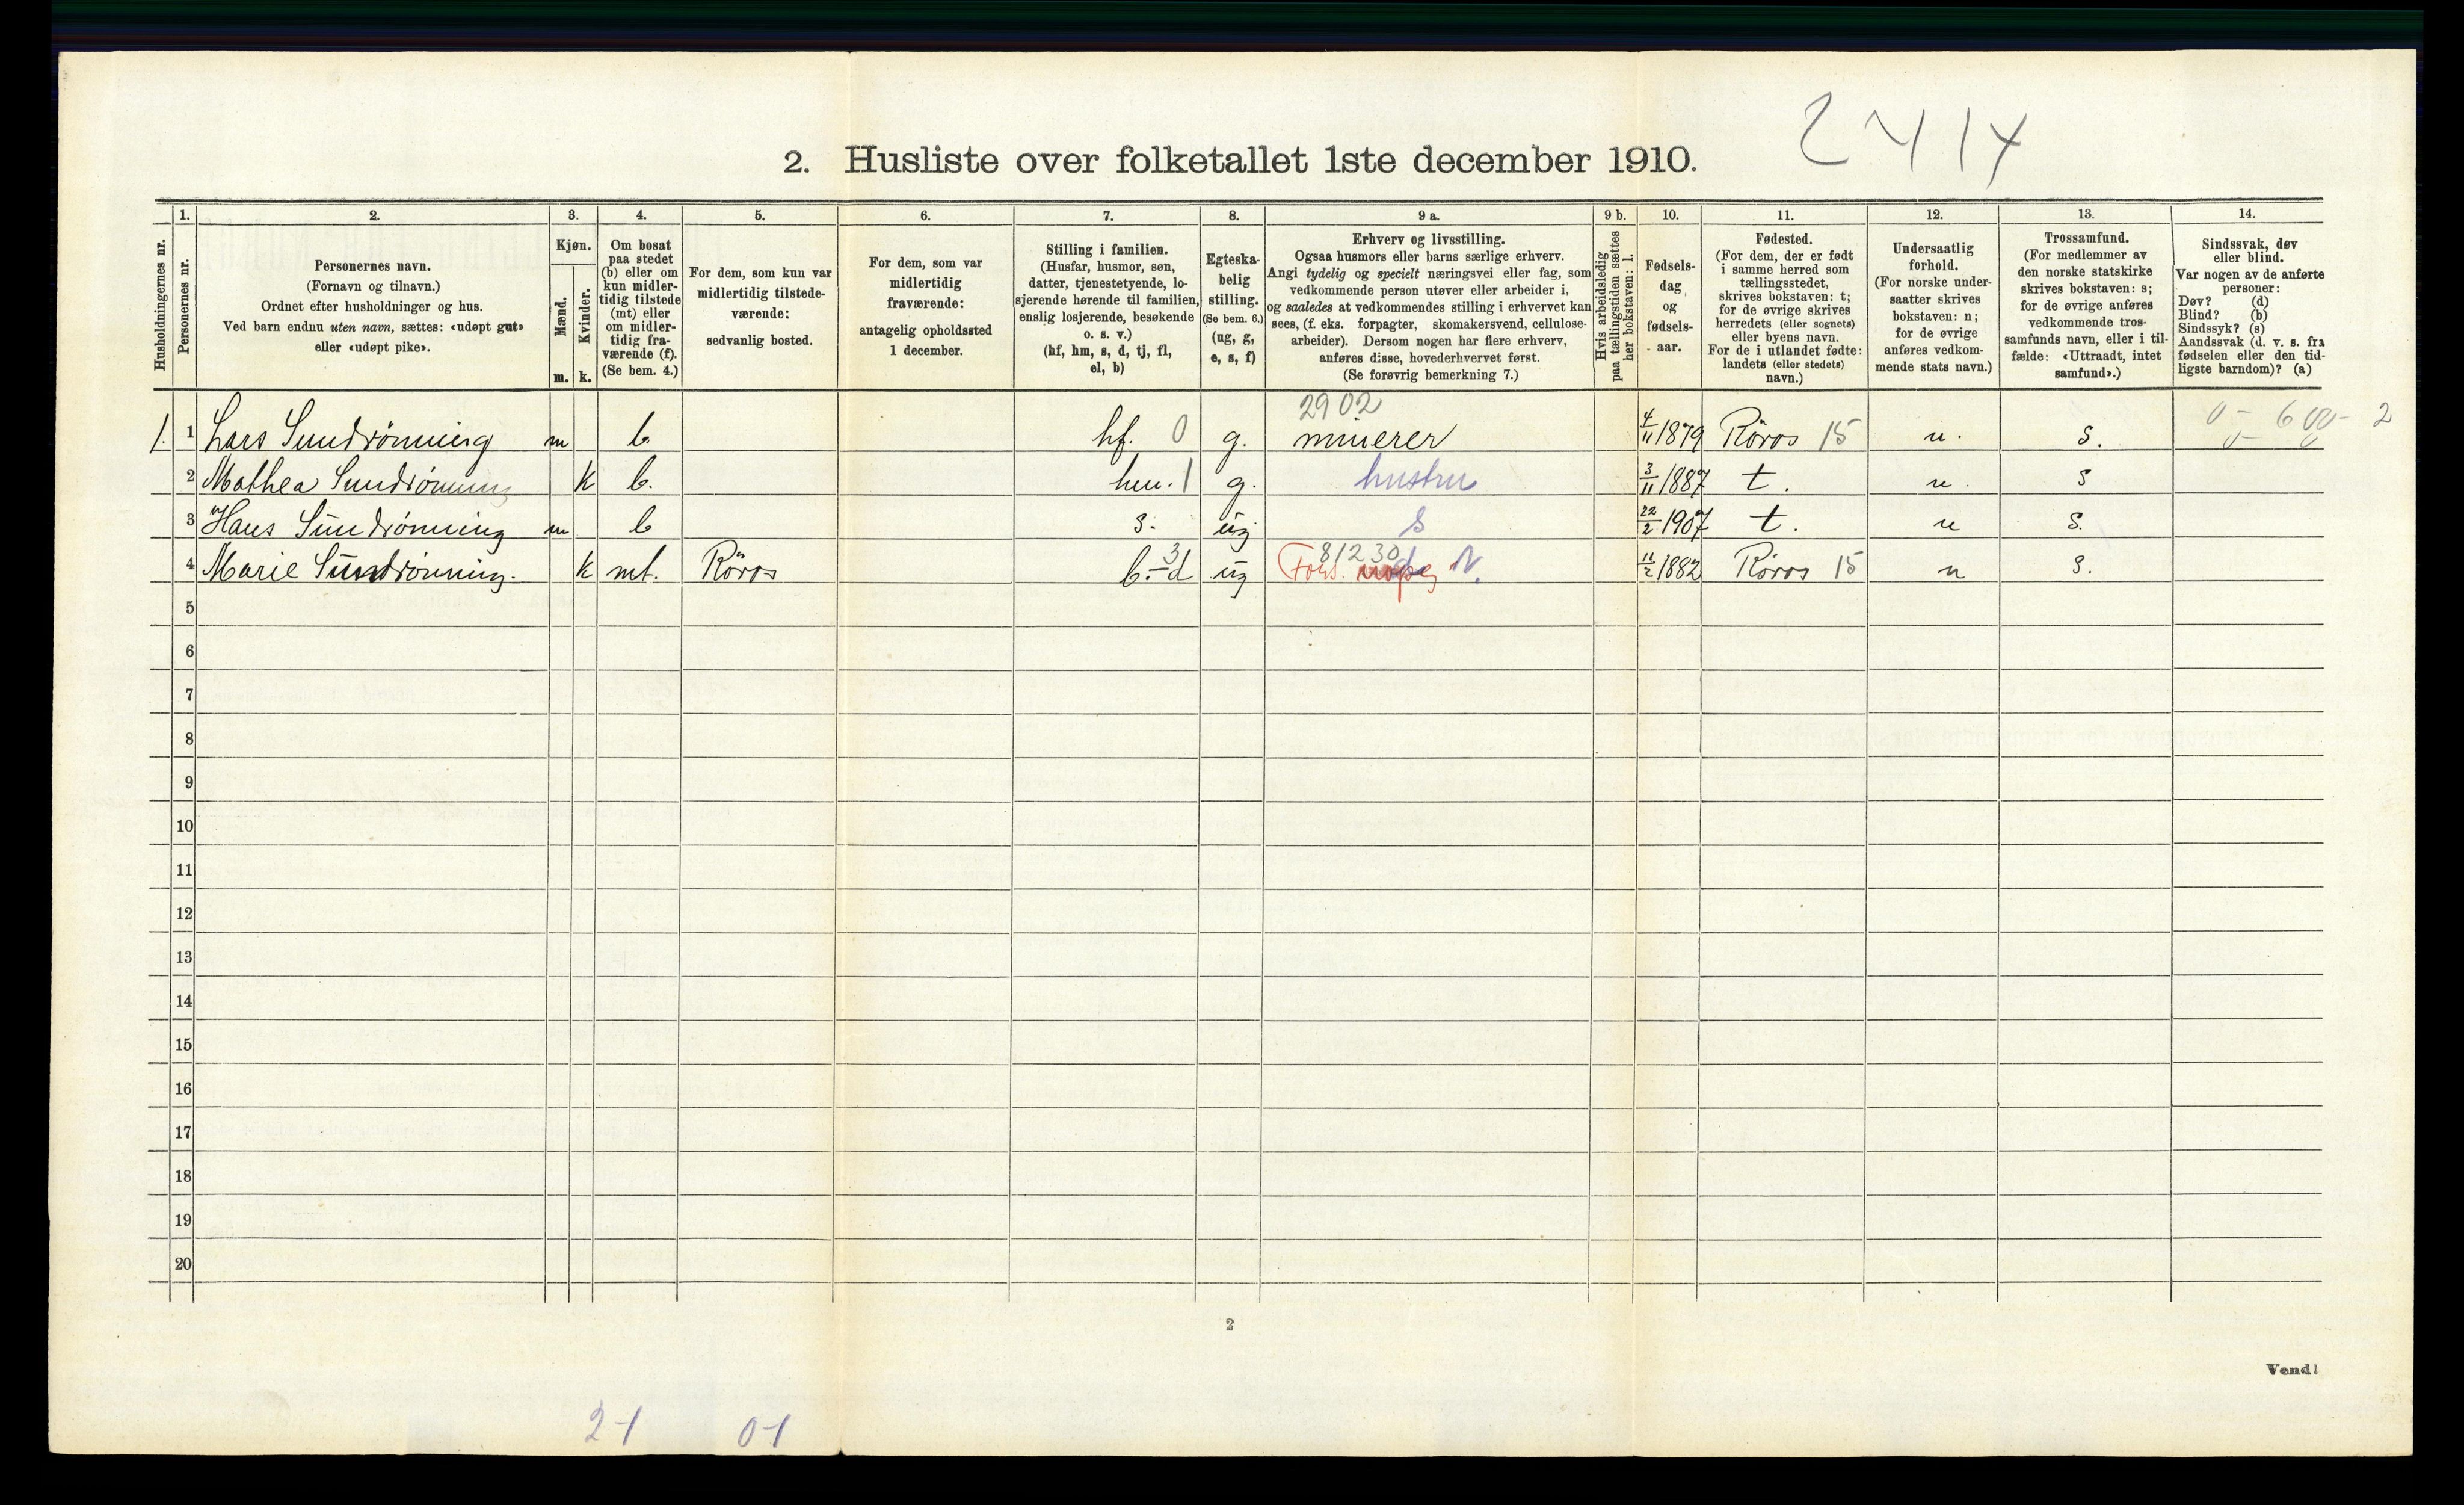 2414
2. Husliste over folketallet 1ste december 1910.
1. 2. 3. 4. 5. 6. 7. 8. 9 a. 9 b. 10. 11. 12. 13. 14.
Husholdningernes nr.
Personernes nr.
Personernes navn.
(Fornavn og tilnavn.)
Ordnet efter husholdninger og hus.
Ved barn endnu uten navn, sættes: «udøpt gut»
eller «udøpt pike».
Kjøn.
Mænd.
Kvinder.
m. k.
Om bosat
paa stedet
(b) eller om
kun midler-
tidig tilstede
(mt) eller
om midler-
tidig fra-
værende (f).
(Se bem. 4.)
For dem, som kun var
midlertidig tilstede-
værende:
sedvanlig bosted.
For dem, som var
midlertidig
fraværende:
antagelig opholdssted
1 december.
Stilling i familien.
(Husfar, husmor, søn,
datter, tjenestetyende, lo-
sjerende hørende til familien,
enslig losjerende, besøkende
o. s. v.)
(hf, hm, s, d, tj, fl,
el, b)
Egteska-
belig
stilling.
(Se bem. 6.)
(ug, g,
e, s, f)
Erhverv og livsstilling.
Ogsaa husmors eller barns særlige erhverv.
Angi tydelig og specielt næringsvei eller fag, som
vedkommende person utøver eller arbeider i,
og saaledes at vedkommendes stilling i erhvervet kan
sees, (f. eks. forpagter, skomakersvend, cellulose-
arbeider). Dersom nogen har flere erhverv,
anføres disse, hovederhvervet først.
(Se forøvrig bemerkning 7.)
Hvis arbeidsledig
paa tællingstiden sættes
her bokstaven: l.
Fødsels-
dag
og
fødsels-
aar.
Fødested.
(For dem, der er født
i samme herred som
tællingsstedet,
skrives bokstaven: t;
for de øvrige skrives
herredets (eller sognets)
eller byens navn.
For de i utlandet fødte:
landets (eller stedets)
navn.)
Undersaatlig
forhold.
(For norske under-
saatter skrives
bokstaven: n;
for de øvrige
anføres vedkom-
mende stats navn.)
Trossamfund.
(For medlemmer av
den norske statskirke
skrives bokstaven: s;
for de øvrige anføres
vedkommende tros-
samfunds navn, eller i til-
fælde: «Uttraadt, intet
samfund».)
Sindssvak, døv
eller blind.
Var nogen av de anførte
personer:
Døv? (d)
Blind? (b)
Sindssyk? (s)
Aandssvak (d. v. s. fra
fødselen eller den tid-
ligste barndom)? (a)
2902
1. 1 Lars Sundrönning m b hf. 0 g. minerer 4/11 1879 Röros 15 n. s.
2 Mathea Sundrönning k b. hm. 1 g. hustru 3/11 1887 t. n. s
3 Hans Sundrönning m b s. ug s 22/2 1907 t. n s.
81230
4 Marie Sundrönning. k mt. Röros b.-d 3 ug Fors. 11/2 1882 Röros 15 n s.
5
6
7
8
9
10
11
12
13
14
15
16
17
18
19
20
2
Vend!
2-1 0-1